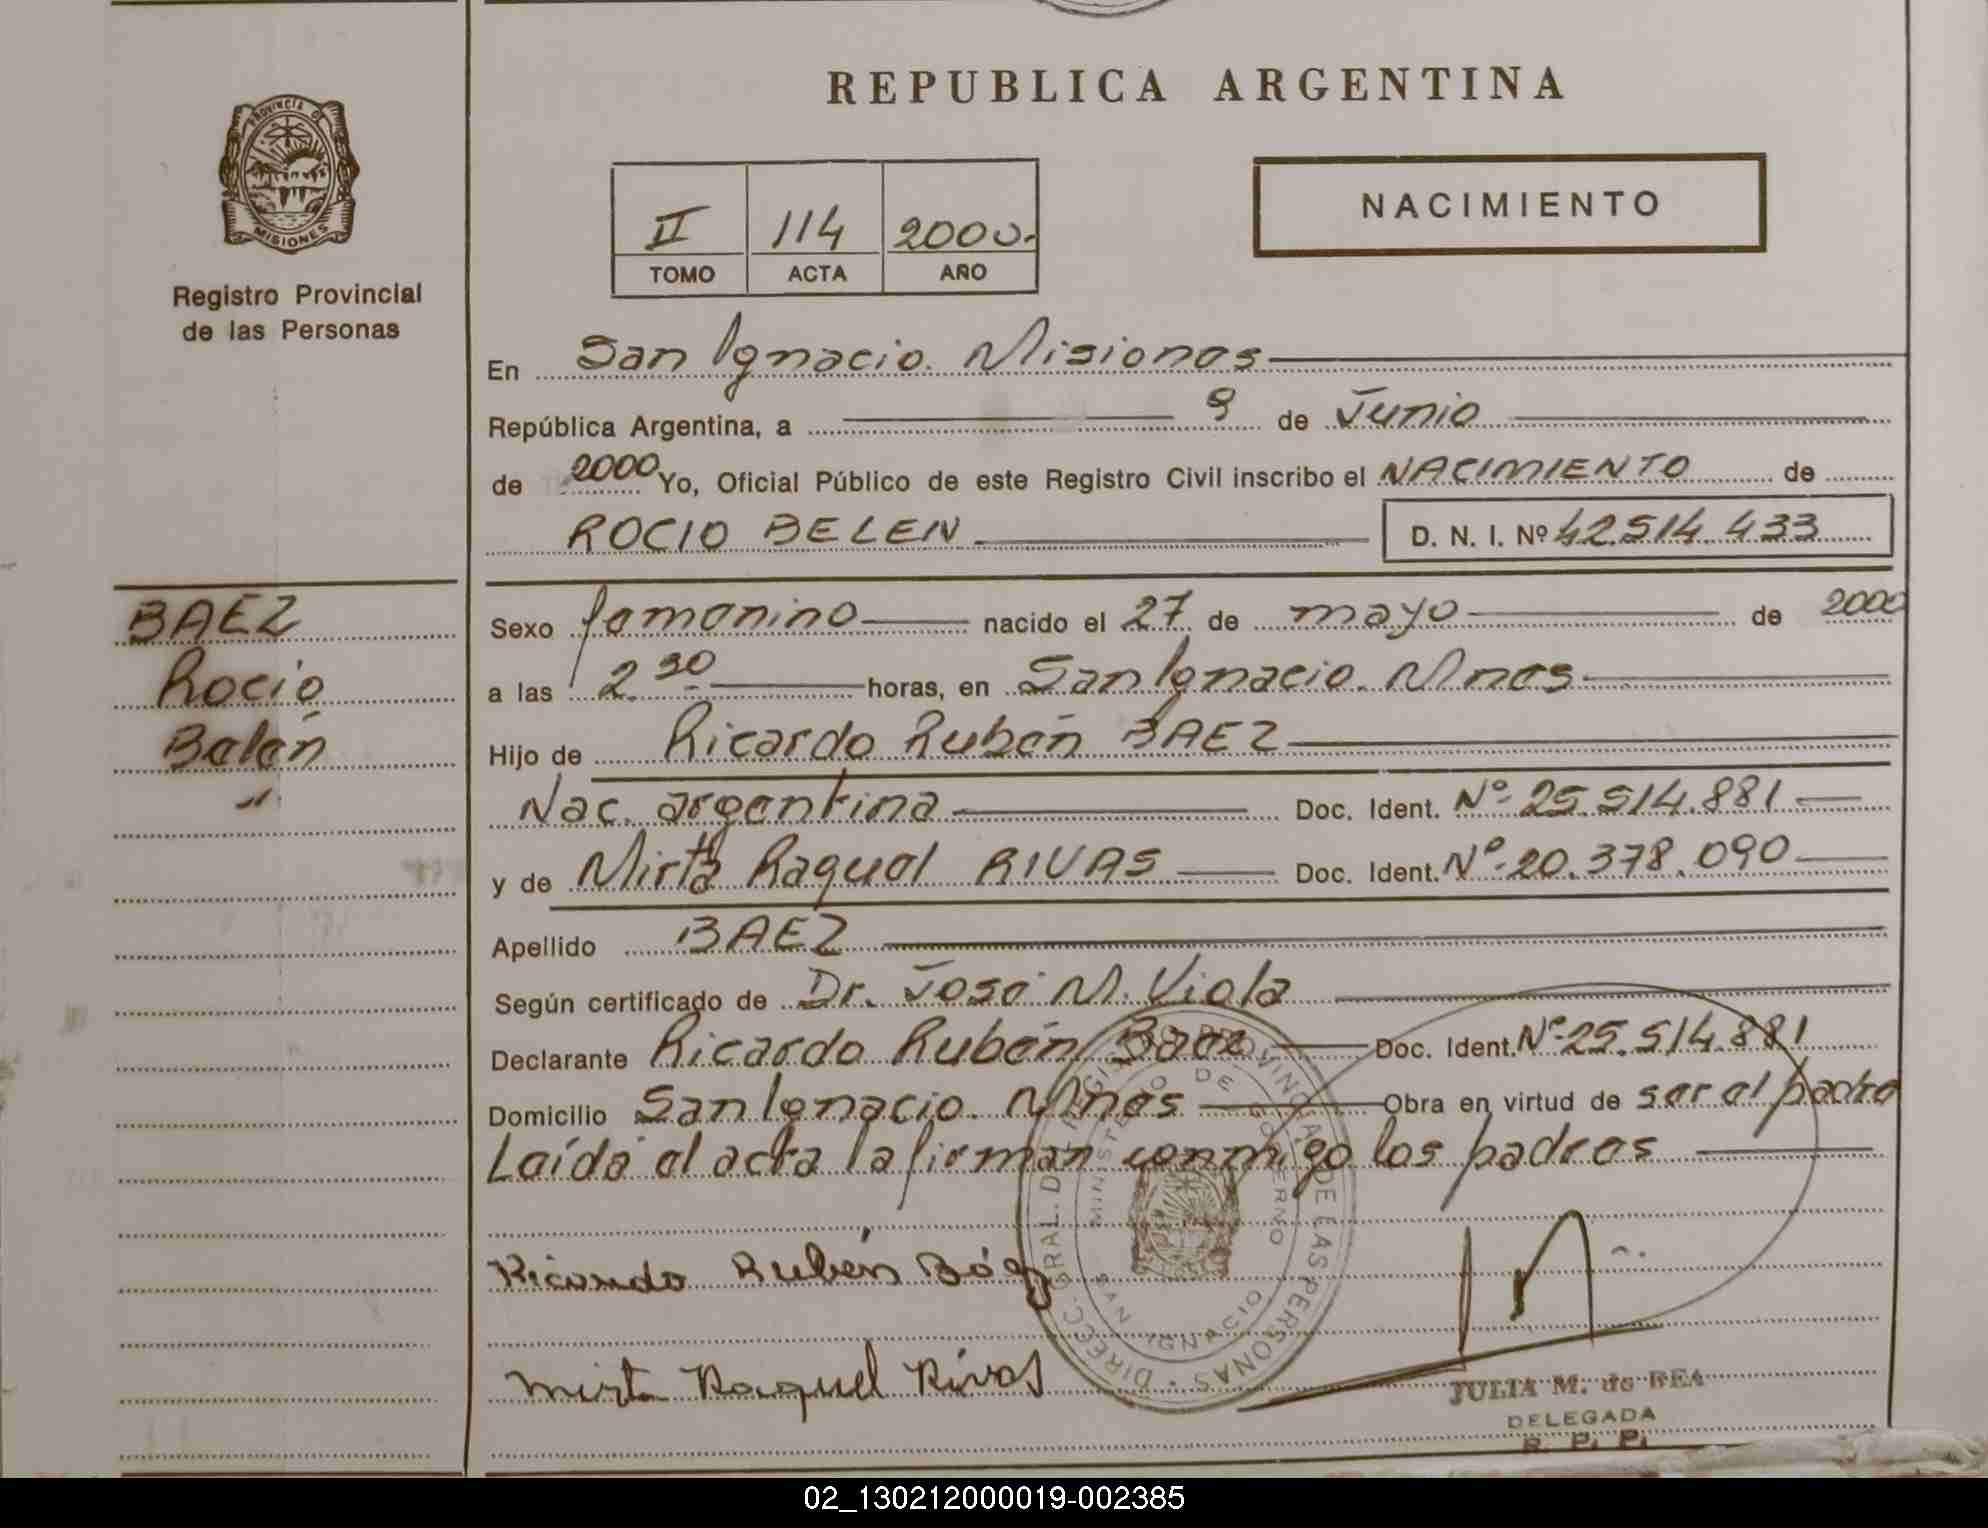 REPUBLICA ARGENTINA
PROVINCIA DE
MISIONES
Registro Provincial
de las Personas
II 114 2000.-
TOMO ACTA AÑO
NACIMIENTO
En San Ignacio. Misiones
República Argentina, a 9 de Junio
de 2000 Yo, Oficial Público de este Registro Civil inscribo el NACIMIENTO de
ROCIO BELEN D. N. I. Nº 42.514.433
BAEZ
Rocio
Belén
Sexo femenino nacido el 27 de mayo de 2000
a las 2.30 horas, en San Ignacio. Mnes
Hijo de Ricardo Rubén BAEZ
Nac. argentina Doc. Ident. Nº 25.514.881
y de Mirta Raquel RIVAS Doc. Ident. Nº 20.378.090
Apellido BAEZ
Según certificado de Dr. José M. Viola
Declarante Ricardo Rubén Baez Doc. Ident. Nº 25.514.881
Domicilio San Ignacio. Mnes Obra en virtud de ser el padre
Leída el acta la firman conmigo los padres
Ricardo Rubén Báez
Mirta Raquel Rivas
DIREC. GRAL. DE REGISTRO PROVINCIAL DE LAS PERSONAS
MINISTERIO DE GOBIERNO
SAN IGNACIO
JULIA M. de BEA
DELEGADA
R. P. P.
02_130212000019-002385